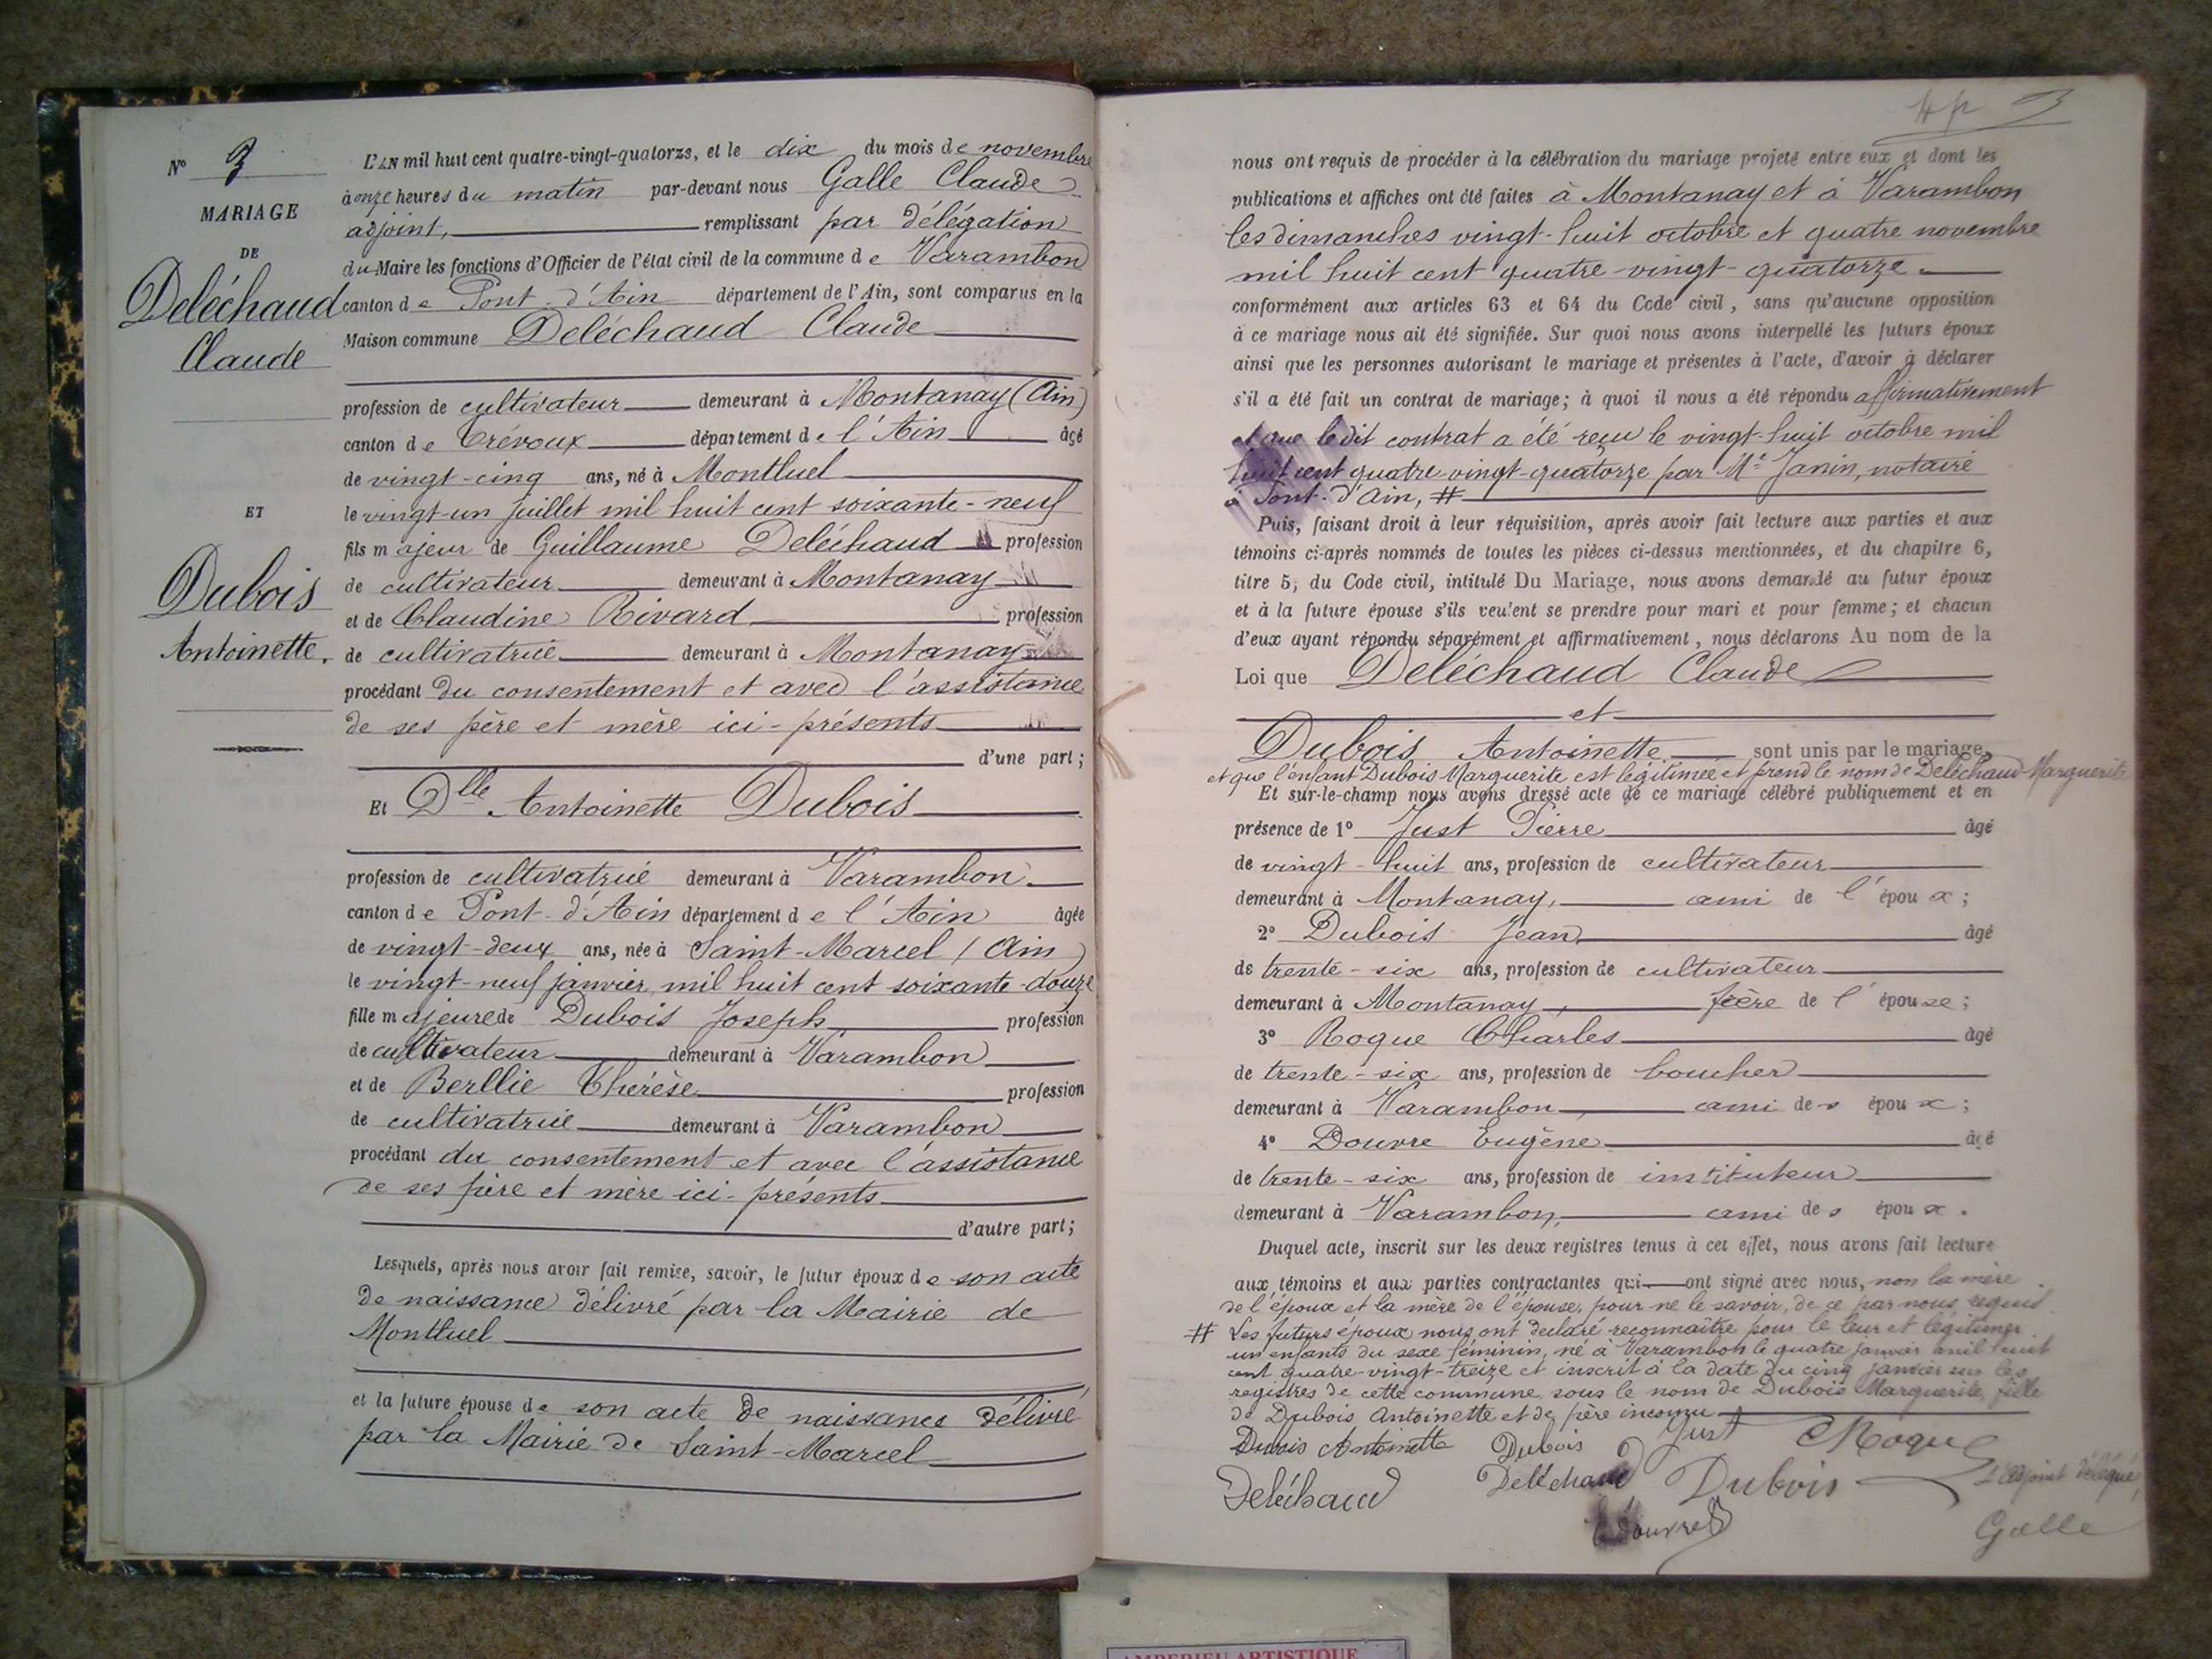 N° 3
MARIAGE
DE
Deléchaud
Claude
ET
Dubois
Antoinette.
L'AN mil huit cent quatre-vingt-quatorze, et le dix du mois de novembre
à onze heures du matin par-devant nous Galle Claude
adjoint, remplissant par délégation
du Maire les fonctions d'Officier de l'état civil de la commune de Varambon
canton de Pont-d'Ain département de l'Ain, sont comparus en la
Maison commune Deléchaud Claude
profession de cultivateur demeurant à Montanay (Ain)
canton de Trévoux département de l'Ain âgé
de vingt-cinq ans, né à Montluel
le vingt-un juillet mil huit cent soixante-neuf
fils majeur de Guillaume Deléchaud profession
de cultivateur demeurant à Montanay
et de Claudine Rivard profession
de cultivatrice demeurant à Montanay
procédant du consentement et avec l'assistance
de ses père et mère ici-présents
d'une part;
Et Dlle Antoinette Dubois
profession de cultivatrice demeurant à Varambon
canton de Pont-d'Ain département de l'Ain âgée
de vingt-deux ans, née à Saint-Marcel (Ain)
le vingt-neuf janvier mil huit cent soixante-douze
fille majeure de Dubois Joseph profession
de cultivateur demeurant à Varambon
et de Berllie Thérèse profession
de cultivatrice demeurant à Varambon
procédant du consentement et avec l'assistance
de ses père et mère ici-présents
d'autre part;
Lesquels, après nous avoir fait remise, savoir, le futur époux de son acte
de naissance délivré par la Mairie de
Montluel
et la future épouse de son acte de naissance délivré
par la Mairie de Saint-Marcel
3
nous ont requis de procéder à la célébration du mariage projeté entre eux et dont les
publications et affiches ont été faites à Montanay et à Varambon
les dimanches vingt-huit octobre et quatre novembre
mil huit cent quatre-vingt-quatorze
conformément aux articles 63 et 64 du Code civil, sans qu'aucune opposition
à ce mariage nous ait été signifiée. Sur quoi nous avons interpellé les futurs époux
ainsi que les personnes autorisant le mariage et présentes à l'acte, d'avoir à déclarer
s'il a été fait un contrat de mariage; à quoi il nous a été répondu affirmativement
et que le dit contrat a été reçu le vingt-huit octobre mil
huit cent quatre-vingt-quatorze par Me Janin, notaire
à Pont-d'Ain, #
Puis, faisant droit à leur réquisition, après avoir fait lecture aux parties et aux
témoins ci-après nommés de toutes les pièces ci-dessus mentionnées, et du chapitre 6,
titre 5, du Code civil, intitulé Du Mariage, nous avons demandé au futur époux
et à la future épouse s'ils veulent se prendre pour mari et pour femme; et chacun
d'eux ayant répondu séparément et affirmativement, nous déclarons Au nom de la
Loi que Deléchaud Claude
et
Dubois Antoinette sont unis par le mariage,
et que l'enfant Dubois Marguerite est légitimée et prend le nom de Deléchaud Marguerite
Et sur-le-champ nous avons dressé acte de ce mariage célébré publiquement et en
présence de 1° Just Pierre âgé
de vingt-huit ans, profession de cultivateur
demeurant à Montanay, ami de l'époux;
2° Dubois Jean âgé
de trente-six ans, profession de cultivateur
demeurant à Montanay, frère de l'épouse;
3° Roque Charles âgé
de trente-six ans, profession de boucher
demeurant à Varambon, ami des époux;
4° Douvre Eugène âgé
de trente-six ans, profession de instituteur
demeurant à Varambon, ami des époux.
Duquel acte, inscrit sur les deux registres tenus à cet effet, nous avons fait lecture
aux témoins et aux parties contractantes qui ont signé avec nous, non la mère
de l'époux et la mère de l'épouse, pour ne le savoir, de ce par nous requis.
# Les futurs époux nous ont declaré reconnaître pour le leur et légitimer
un enfants du sexe féminin, né à Varambon le quatre janvier mil huit
cent quatre-vingt-treize et inscrit à la date du cinq janvier sur les
registres de cette commune sous le nom de Dubois Marguerite, fille
de Dubois Antoinette et de père inconnu
Dubois Antoinette Dubois Just CRoque
Deléchaud Deléchaud Dubois L'adjoint délégué,
E Douvre Galle
AMBERIEU ARTISTIQUE